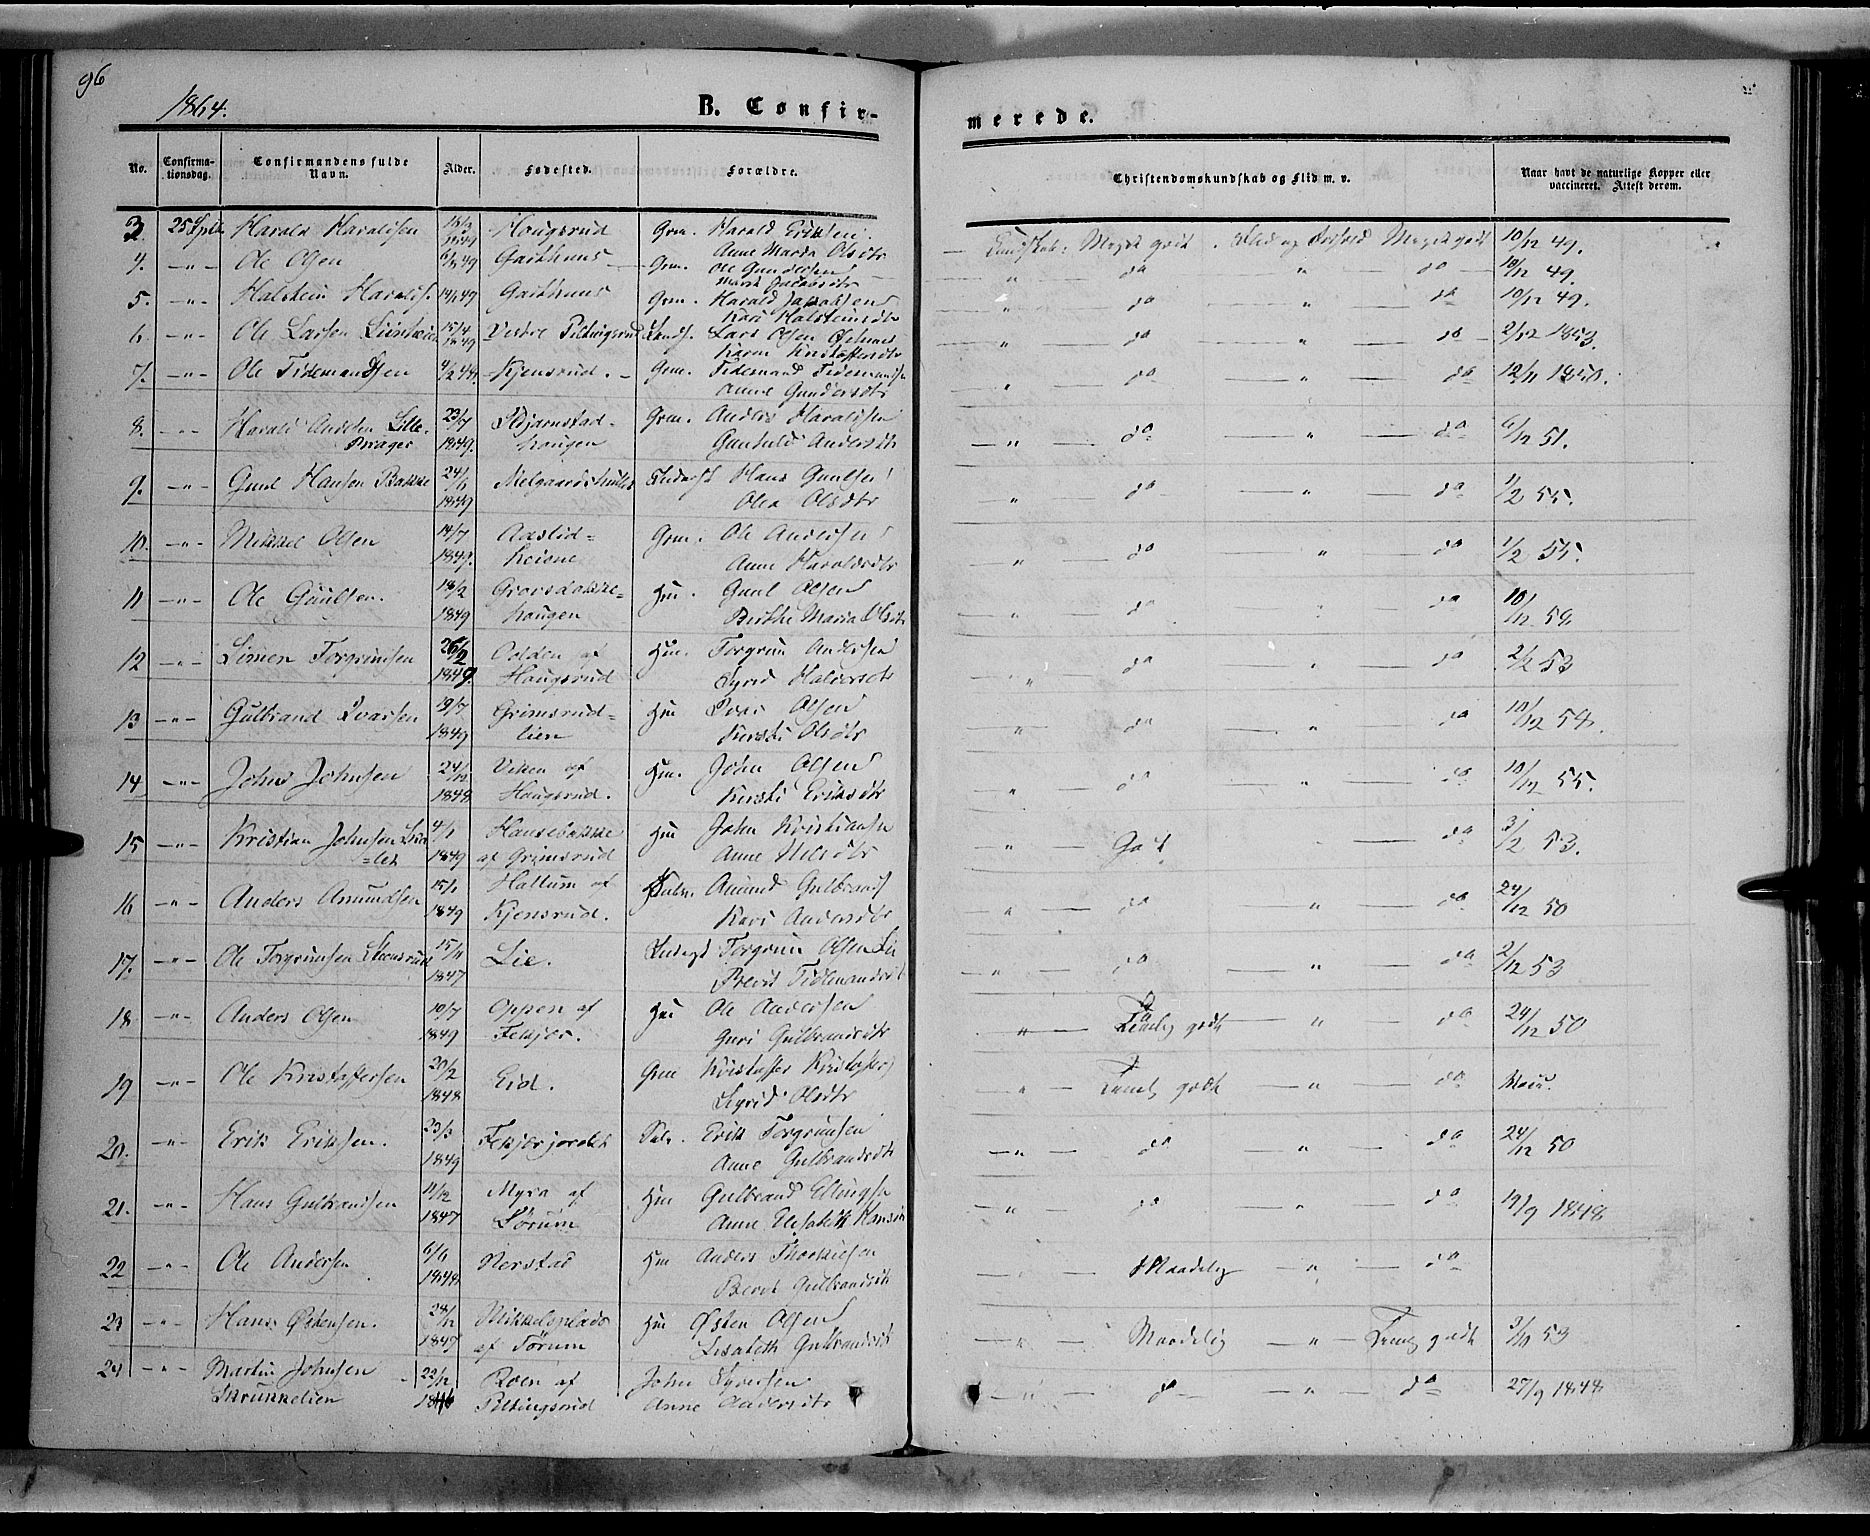 96
1864.
B. Confir-
merede.
No.
Confirma-
tionsdag.
Confirmandens fulde
Navn.
Alder.
Fødested.
Forældre.
Christendomskundskab og Flid m. v.
Naar havt de naturlige Kopper eller
vaccineret. Attest derom.
3. 25 Harald Haraldsen 1849 Haugsrud Grm. Harald Eriksen Kundskab: Meget godt. Flid og Meget godt 10/12 49.
Anne Maria Olsdtr
4. -"- Ole Olsen 49 Gaithuus Grm. Ole Gundersen " do " do 10/12 49.
Marit Jacobsdtr
5. -"- Halstein Haralds. 49 Gaithuus Grm. Harald Jakobsen " do " do 10/12 49.
Kari Halsteinsdtr
6. -"- Ole Larsen 15/4 1849 Vestre Lars Olsen " do " do 2/12 1853.
Karen Kristoffersdtr
7. -"- Ole Tidemandsen 4/2 48. Kjensrud. Grm. Tidemand Tidemandsen " do " do 12/11 1850.
Anne Gundersdtr
8. -"- Harald Andersen Lille- 23/7 Skjærnstad- Grm. Anders Haraldsen " do " do 6/12 51.
Brager 1849. haugen Gunhild Andersdtr
9. -"- Guul Hansen Bakke 24/6 Hans Guulsen " do " do 1/2 55.
1849 Olea Olsdtr
10. -"- Mikkel Olsen 14/7 Aaslid- Grm. Ole Andersen " do " do 1/2 55.
1849. Anne Haraldsdtr
11 -"- Ole Guulsen. 18/2 Hm. Guul Olsen " do " do 10/12 58
1849 haugen Berthe Maria Olsdtr
12 -"- Simen Torgrimsen 26/2 af Hm. Torgrim Andersen " do " do 2/12 53
1849. Haugsrud Syrid Halvorsdtr
13 -"- Gulbrand Ivarsen 19/7 Grimsrud- Hm Ivar Olsen " do " do 10/12 58.
1849 lien Kersti Olsdtr
14 -"- John Johnsen 24/12 Viken af Hm. John Olsen " do " do 10/12 55.
1848 Haugsrud. Kersti Eriksdtr
15 -"- Kristian Johnsen 4/1 Hausebakke Hm John Kristiansen " Godt do 3/12 53.
1849 af Grimsrud Anne Nilsdtr
16 -"- Anders Amundsen 15/1 Hallum af Amund Gulbrands " do " do 24/12 50
1849 Kjensrud. Kari Andersdtr
17. -"- Ole Torgrimsen Steensrud 15/11 Lie. Torgrim Olsen Lie " do " do 2/12 53
1847 Berit Tidemandsdtr
18 -"- Anders Olsen 10/7 Oppen af Hm Ole Andersen " Temlig godt " do 24/12 50
1849 Fekjær. Guri Gulbrandsdtr
19 -"- Ole Kristoffersen 20/2 Eid. Grm Kristoffer Kristoffers " Temlig godt " do
1848 Sigrid Olsdtr
20. -"- Erik Eriksen. 23/3 Fekjærjordet Erik Torgrimsen " do " do 24/12 50
1849 Anne Gulbrandsdtr
21. -"- Hans Gulbrandsen 11/12 Myra af Hm Gulbrand Ellingsen " do do 19/9 1848
1847 Sørum Anne Elisabeth Hansdtr
22 -"- Ole Andersen 6/6 Nerstad Hm Anders " Maadelig " do
1848. Berit Gulbrandsdtr
23 -"- Hans Østensen. 24/12 Mikkelsplads Hm Østen Olsen " Maadelig " Temlig godt 3/11 53
1847 af Sørum Lisabeth Gulbrandsdtr
24 -"- Martin Johnsen 22/12 Roen af John Syversen " do " do 27/9 1848
Skrukkelien 1846 Anne Andersdtr